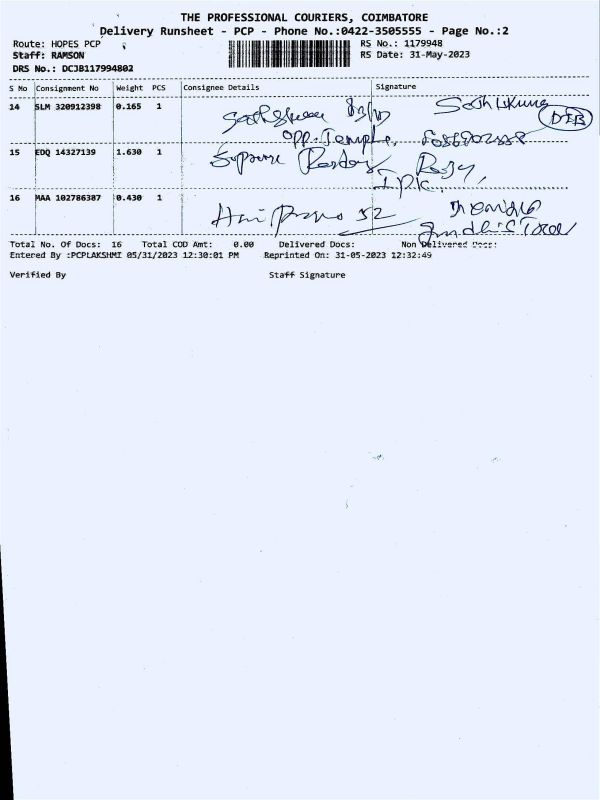 THE PROFESSIONAL COURIERS, COIMBATORE
Delivery Runsheet - PCP - Phone No.:0422-3505555 - Page No.:2
Route: HOPES PCP
RS No.: 1179948
Staff: RAMSON
RS Date: 31-May-2023
DRS No.: DCJB117994802
S No Consignment No Weight PCS Consignee Details Signature
14 SLM 320912398 0.165 1
Opp. Temple,
15 EDQ 14327139 1.630 1 Supreme
16 MAA 102786387 0.430 1 52
Total No. Of Docs: 16 Total COD Amt: 0.00 Delivered Docs: Non Delivered Docs:
Entered By :PCPLAKSHMI 05/31/2023 12:30:01 PM Reprinted On: 31-05-2023 12:32:49
Verified By Staff Signature